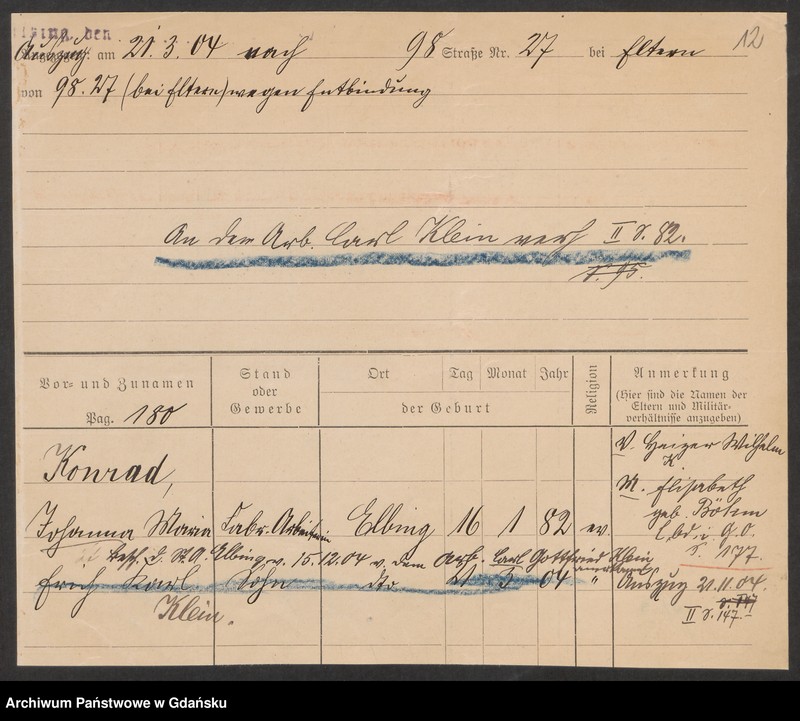 Elbing, den
am 21.3.04 nach 98 Straße Nr. 27 bei Eltern 12
von 98.27 (bei Eltern) wegen Entbindung
An den Arb. Carl Klein verh II S. 82.
S. 95.
Vor- und Zunamen
Pag. 180
Stand
oder
Gewerbe
Ort Tag Monat Jahr
der Geburt
Religion
Anmerkung
(Hier sind die Namen der
Eltern und Militär-
verhältnisse anzugeben)
V. Heizer Wilhelm
K.
Konrad,
M. Elisabeth
geb. Böhm
Johanna Maria Fabr. Arbeiterin Elbing 16 1 82 ev.
S. 177.
d. St. A. Elbing v. 15.12.04 v. dem Arb. Carl Gottfried Klein
Erich Karl Sohn do 21 3 04 " Auszug 21.11.04.
Klein.
II S. 147
Archiwum Państwowe w Gdańsku